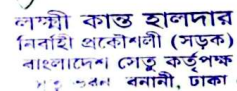 লক্ষ্মী কান্ত হালদার
নির্বাহী প্রকৌশলী (সড়ক)
বাংলাদেশ সেতু কর্তৃপক্ষ
সেতু ভবন বনানী, ঢাকা